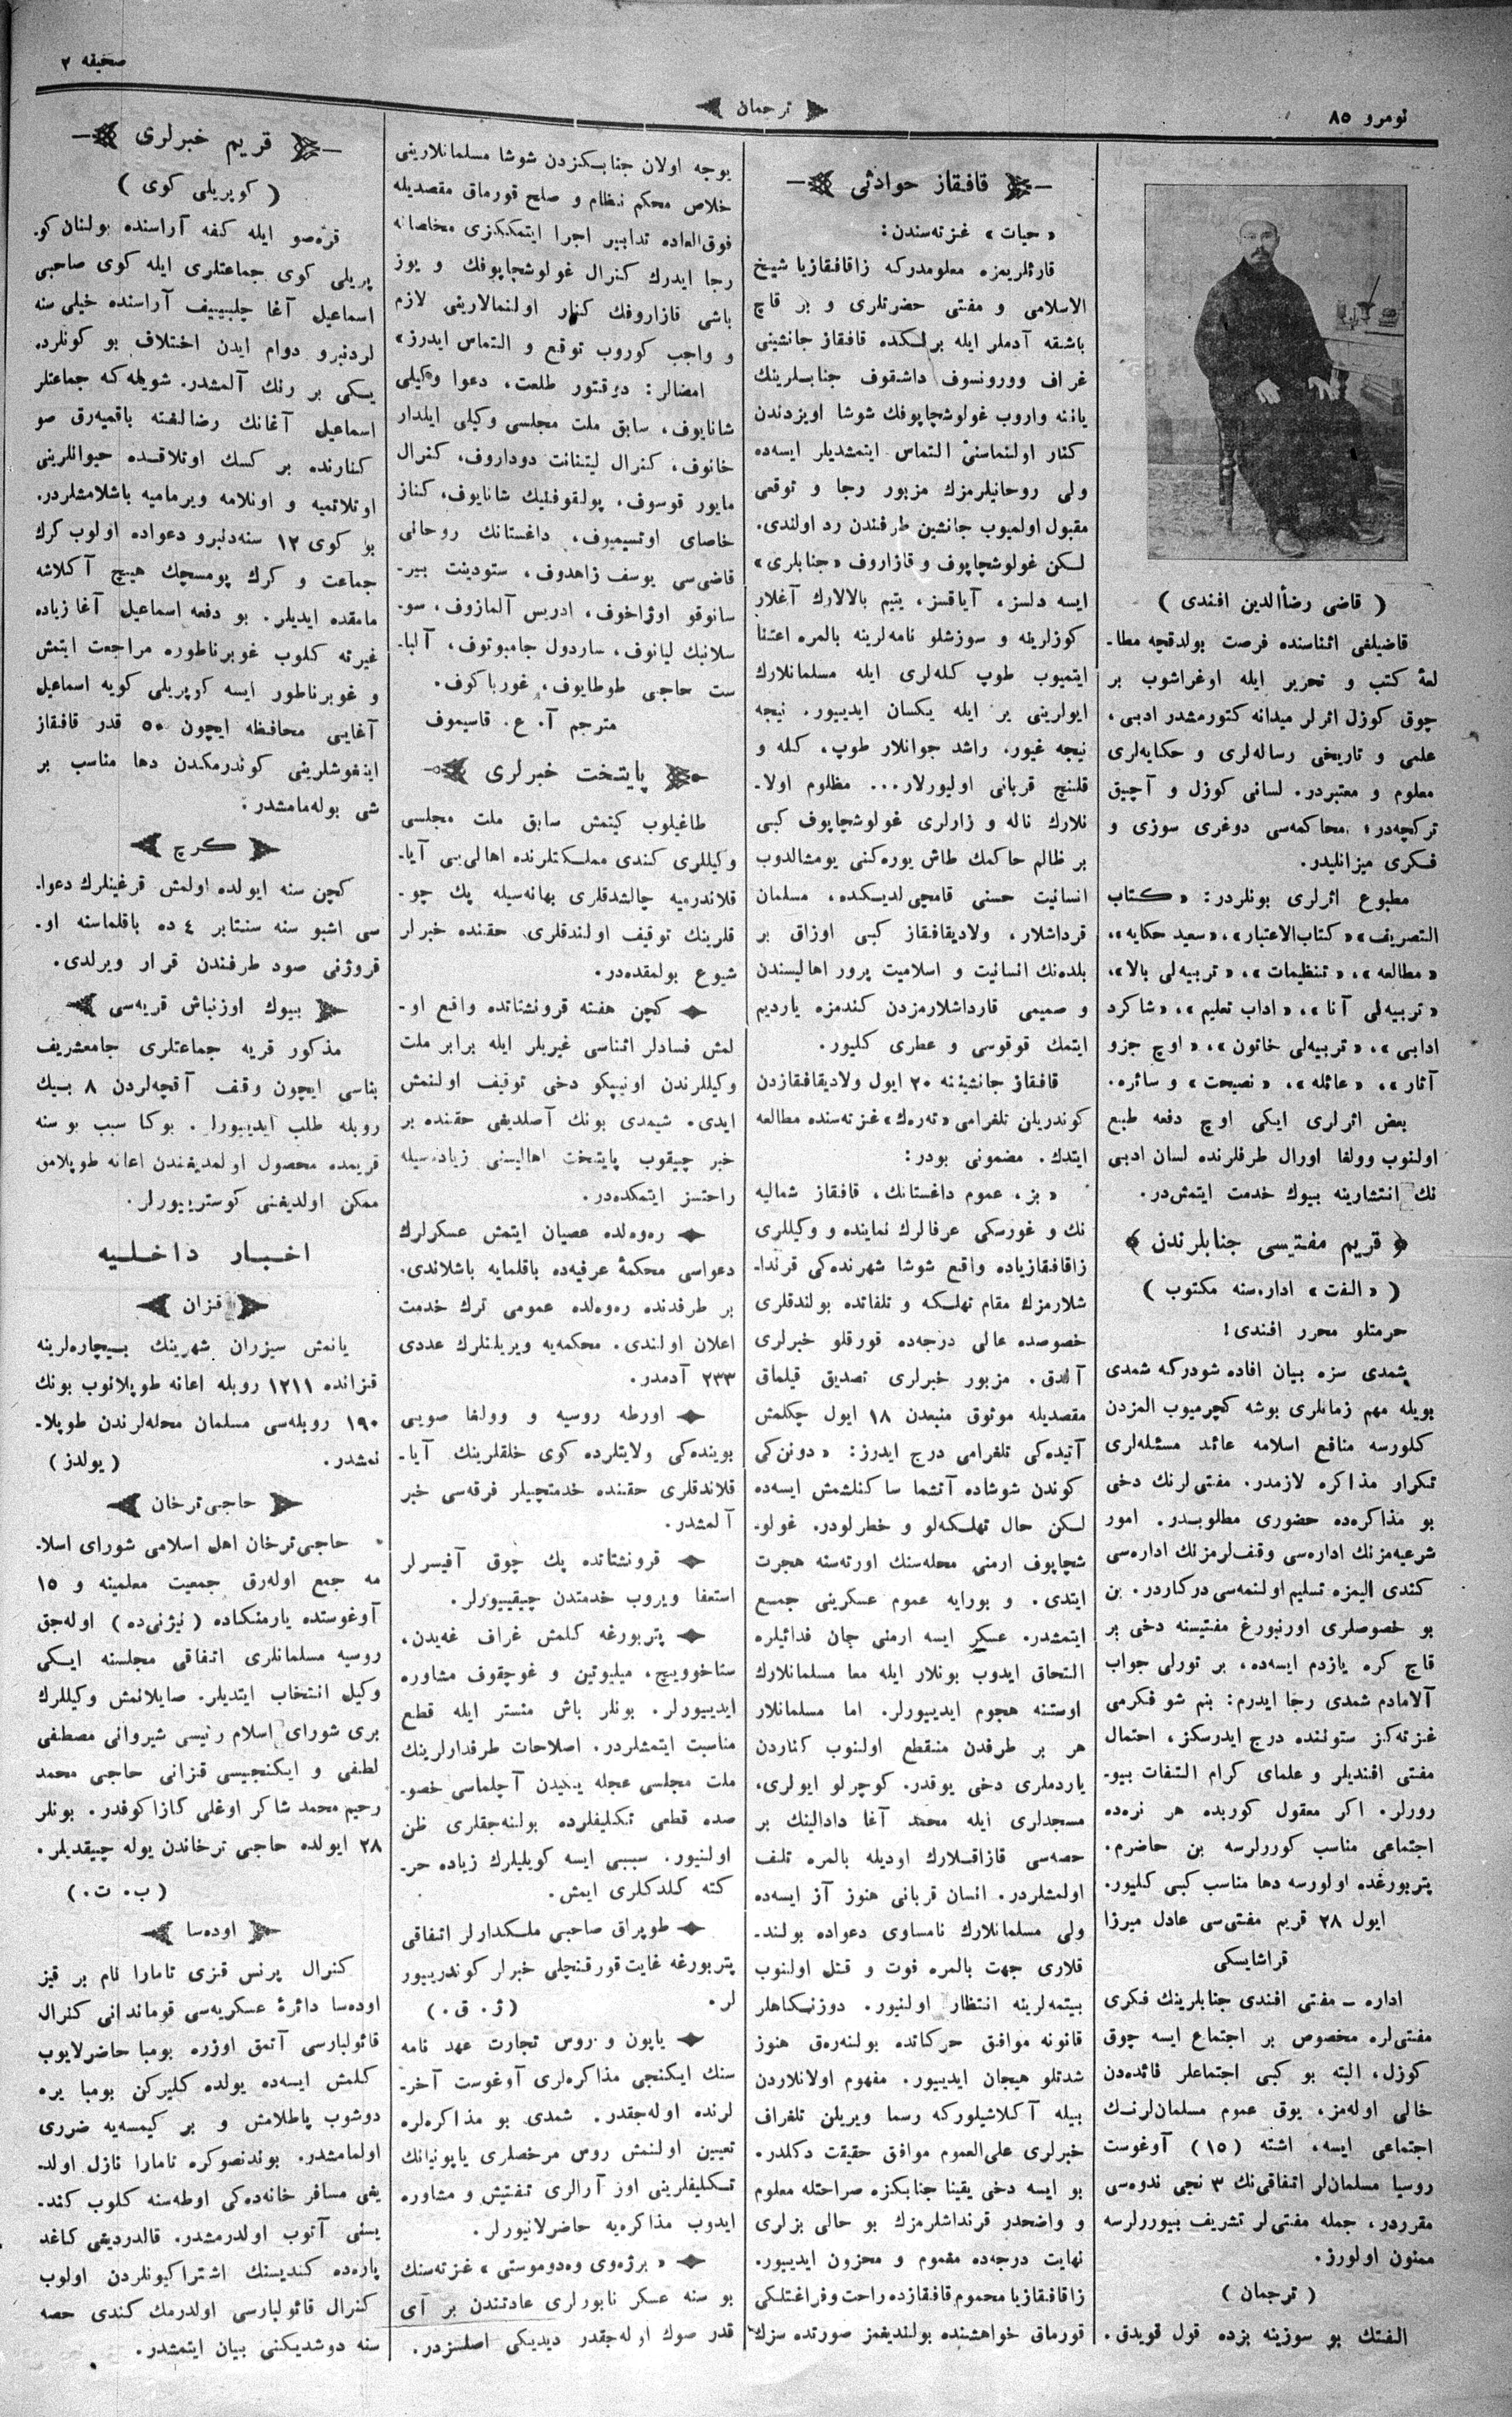 نومرو ٨٥
ترجمان
صحيفه ٢
( قاضی رضأالدین افندی )
قاضیلغی اثناسنده فرصت بولدقچه مطا-
لعۀ كتب و تحریر ایله اوغراشوب بر
چوق كوزل اثرلر میدانه كتورمشدر ادبی،
علمی و تاریخی رساله‌لری و حكایه‌لری
معلوم و معتبردر. لسانی كوزل و آچیق
تركچه‌در؛ محاكمه‌سی دوغری سوزی و
فكری میزانلیدر.
مطبوع اثرلری بونلردر: «كتاب
التصریف» «كتاب‌الاعتبار»، «سعید حكایه»،
«مطالعه»، «تنظیمات»، «تربیه‌لی بالا»،
«تربیه‌لی آنا»، «اداب تعلیم»، «شاكرد
ادابی»، «تربیه‌لی خاتون»، «اوچ جزو
آثار»، «عائله»، «نصیحت» و سائره.
بعض اثرلری ایكی اوچ دفعه طبع
اولنوب وولغا اورال طرفلرنده لسان ادبی
نك انتشارینه بیوك خدمت ایتمش‌در.
﴿ قریم مفتیسی جنابلرندن ﴾
( «الفت» اداره‌سنه مكتوب )
حرمتلو محرر افندی!
شمدی سزه بیان افاده شودركه شمدی
بویله مهم زمانلری بوشه كچرمیوب المزدن
كلورسه منافع اسلامه عائد مسئله‌لری
تكرار مذاكره لازمدر. مفتی‌لرنك دخی
بو مذاكره‌ده حضوری مطلوبدر. امور
شرعیه‌مزنك اداره‌سی وقف‌لرمزنك اداره‌سی
كندی الیمزه تسلیم اولنمه‌سی دركاردر. بن
بو خصوصلری اورنبورغ مفتیسنه دخی بر
قاچ كره یازدم ایسه‌ده، بر تورلی جواب
آلامادم شمدی رجا ایدرم: بنم شو فكرمی
غزته‌كز ستوننده درج ایدرسكز، احتمال
مفتی افندیلر و علمای كرام التفات بیو-
رورلر. اكر معقول كوریده هر نره‌ده
اجتماعی مناسب كوررلرسه بن حاضرم.
پتربورغده اولورسه دها مناسب كبی كلیور.
ایول ٢٨ قریم مفتی‌سی عادل میرزا
قراشایسكی
اداره – مفتی افندی جنابلرینك فكری
مفتی‌لره مخصوص بر اجتماع ایسه چوق
كوزل، البته بو كبی اجتماعلر فائده‌دن
خالی اوله‌مز، یوق عموم مسلمان‌لرنك
اجتماعی ایسه، اشته (١٥) آوغوست
روسیا مسلمان‌لر اتفاقی‌نك ٣ نجی ندوه‌سی
مقرردر، جمله مفتی‌لر تشریف بیوررلرسه
ممنون اولورز.
( ترجمان )
الفتك بو سوزینه بزده قول قویدق.
قافقاز حوادثی
«حیات» غزته‌سندن:
قارئلریمزه معلومدركه زاقافقازیا شیخ
الاسلامی و مفتی حضرتلری و بر قاچ
باشقه آدملر ایله برلكده قافقاز جانشینی
غراف وورونسوف داشقوف جنابلرینك
یاننه واروب غولوشچاپوفك شوشا اویزدندن
كنار اولنماسنی التماس ایتمشدیلر ایسه‌ده
ولی روحانیلرمزك مزبور رجا و توقعی
مقبول اولمیوب جانشین طرفندن رد اولندی.
لكن غولوشچاپوف و قازاروف «جنابلری»
ایسه دلسز، آیاقسز، یتیم بالالارك آغلار
كوزلرینه و سوزشلو نامه‌لرینه بالمره اعتنا
ایتمیوب طوپ كله‌لری ایله مسلمانلارك
ایولرینی یر ایله یكسان ایدییور. نیجه
نیجه غیور. راشد جوانلار طوپ، كله و
قلنچ قربانی اولیورلار... مظلوم اولا-
نلارك ناله و زاولری غولوشچاپوف كبی
بر ظالم حاكمك طاش یوره‌كنی یومشالدوب
انسانیت حسنی قامچی‌لدیكده، مسلمان
قرداشلار، ولادیقافقاز كبی اوزاق بر
بلده‌نك انسانیت و اسلامیت پرور اهالیسندن
و صمیمی قارداشلارمزدن كندمزه یاردیم
ایتمك قوقوسی و عطری كلیور.
قافقاز جانشیننه ٢٠ ایول ولادیقافقازدن
كوندریلن تلغرامی «ته‌رك» غزته‌سنده مطالعه
ایتدك. مضمونی بودر:
«بز، عموم داغستانك، قافقاز شمالیه
نك و غورسكی عرفالرك نماینده و وكیللری
زاقافقازیاده واقع شوشا شهرنده‌كی قرندا-
شلارمزك مقام تهلكه و تلفاتده بولندقلری
خصوصده عالی درجه‌ده قورقلو خبرلری
آلدق. مزبور خبرلری تصدیق قیلماق
مقصدیله موثوق منبعدن ١٨ ایول چكلمش
آتیده‌كی تلغرامی درج ایدرز: «دونن‌كی
كوندن شوشاده آتشما ساكنلشمش ایسه‌ده
لكن حال تهلكه‌لو و خطرلودر. غولو-
شچاپوف ارمنی محله‌سنك اورته‌سنه هجرت
ایتدی. و بورایه عموم عسكرینی جمع
ایتمشدر. عسكر ایسه ارمنی جان فدائیلره
التحاق ایدوب بونلار ایله معا مسلمانلارك
اوستنه هجوم ایدییورلر. اما مسلمانلار
هر بر طرفدن منقطع اولنوب كناردن
یاردملری دخی یوقدر. كوچرلو ایولری،
مسجدلری ایله محمد آغا دادالینك بر
حصه‌سی قازاقلارك اودیله بالمره تلف
اولمشلردر. انسان قربانی هنوز آز ایسه‌ده
ولی مسلمانلارك نامساوی دعواده بولند-
قلاری جهت بالمره فوت و قتل اولنوب
بیتمه‌لرینه انتظار اولنیور. دوزنكاهلر
قانونه موافق حركاتده بولنه‌رق هنوز
شدتلو هیجان ایدییور. مفهوم اولانلاردن
بیله آكلاشیلوركه رسما ویریلن تلغراف
خبرلری علی‌العموم موافق حقیقت دكلدر.
بو ایسه دخی یقینا جنابكزه صراحتله معلوم
و واضحدر قرنداشلرمزك بو حالی بزلری
نهایت درجه‌ده مغموم و محزون ایدییور.
زاقافقازیا محموم قافقازده راحت و فراغتلكی
قورماق خواهشنده بولندیغمز صورتده سزك
یوجه اولان جنابكزدن شوشا مسلمانلارینی
خلاص محكم نظام و صلح قورماق مقصدیله
فوق‌العاده تدابیر اجرا ایتمككزی مخلصانه
رجا ایدرك كنرال غولوشچاپوفك و یوز
باشی قازاروفك كنار اولنمالارینی لازم
و واجب كوروب توقع و التماس ایدرز»
امضالر: دوقتور طلعت، دعوا وكیلی
شانایوف، سابق ملت مجلسی وكیلی ایلدار
خانوف، كنرال لیتنانت دوداروف، كنرال
مایور قوسوف، پولقوفنیك شانایوف، كناز
خاصای اوتسیمیوف، داغستانك روحانی
قاضی‌سی یوسف زاهدوف، ستودینت بیر-
سانوقو اوژاخوف، ادریس آلمازوف، سو-
سلانبك لیانوف، ساردول جامبوتوف، آلبا-
ست حاجی طوطایوف، غورباكوف.
مترجم آ. ع. قاسیموف
پایتخت خبرلری
طاغیلوب كیتمش سابق ملت مجلسی
وكیللری كندی مملكتلرنده اهالی‌یی آیا-
قلاندرمیه چالشدقلری بهانه‌سیله پك چو-
قلرینك توقیف اولندقلری حقنده خبرلر
شیوع بولمقده‌در.
كچن هفته قرونشتاتده واقع او-
لمش فسادلر اثناسی غیریلر ایله برابر ملت
وكیللرندن اونیپكو دخی توقیف اولنمش
ایدی. شیمدی بونك آصلدیغی حقنده بر
خبر چیقوب پایتخت اهالیسنی زیاده‌سیله
راحتسز ایتمكده‌در.
ره‌وه‌لده عصیان ایتمش عسكرلرك
دعواسی محكمۀ عرفیه‌ده باقلمایه باشلاندی.
بر طرفدنده ره‌وه‌لده عمومی ترك خدمت
اعلان اولندی. محكمه‌یه ویریلنلرك عددی
٢٣٣ آدمدر.
اورطه روسیه و وولغا صویی
بوینده‌كی ولایتلرده كوی خلقلرینك آیا-
قلاندقلری حقنده خدمتچیلر فرقه‌سی خبر
آلمشدر.
قرونشتاتده پك چوق آفیسرلر
استعفا ویروب خدمتدن چیقییورلر.
پتربورغه كلمش غراف غه‌یدن،
ستاخوویچ، میلیوتین و غوچقوف مشاوره
ایدییورلر. بونلر باش منستر ایله قطع
مناسبت ایتمشلردر. اصلاحات طرفدارلرینك
ملت مجلسی عجله یكیدن آچلماسی خصو-
صده قطعی تكلیفلرده بولنه‌جقلری ظن
اولنیور. سببی ایسه كویلیلرك زیاده حر-
كته كلدكلری ایمش.
طوپراق صاحبی ملكدارلر اتفاقی
پتربورغه غایت قورقنچلی خبرلر كوندرییور
لر. (ژ. ق.)
یاپون و روس تجارت عهد نامه
سنك ایكنجی مذاكره‌لری آوغوست آخر-
لرنده اوله‌جقدر. شمدی بو مذاكره‌لره
تعیین اولنمش روس مرخصلری یاپونیانك
تكلیفلرینی اوز آرالری تفتیش و مشاوره
ایدوب مذاكره‌یه حاضرلانیورلر.
«برژه‌وی وه‌دوموستی» غزته‌سنك
بو سنه عسكر نابورلری عادتندن بر آی
قدر صوك اوله‌جقدر دیدیكی اصلسزدر.
قریم خبرلری
( كوپریلی كوی )
قره‌صو ایله كفه آراسنده بولنان كو-
پریلی كوی جماعتلری ایله كوی صاحبی
اسماعیل آغا چلبییف آراسنده خیلی سنه
لردنبرو دوام ایدن اختلاف بو كونلرده
یكی بر رنك آلمشدر. شویله‌كه جماعتلر
اسماعیل آغانك رضالغنه باقمیه‌رق صو
كنارنده بر كسك اوتلاقده حیوانلرینی
اوتلاتمیه و اونلامه ویرمامیه باشلامشلردر.
بو كوی ١٢ سنه‌دنبرو دعواده اولوب كرك
جماعت و كرك پومسچك هیچ آكلاشه
مامقده ایدیلر. بو دفعه اسماعیل آغا زیاده
غیرته كلوب غوبرناطوره مراجعت ایتمش
و غوبرناطور ایسه كوپریلی كویه اسماعیل
آغایی محافظه ایچون ٥٠ قدر قافقاز
اینغوشلرینی كوندرمكدن دها مناسب بر
شی بوله‌مامشدر.
كرچ
كچن سنه ایولده اولمش قرغینلرك دعوا-
سی اشبو سنه سنتابر ٤ ده باقلماسنه او-
قروژنی صود طرفندن قرار ویرلدی.
بیوك اوزنباش قریه‌سی
مذكور قریه جماعتلری جامعشریف
بناسی ایچون وقف آقچه‌لردن ٨ بیك
روبله طلب ایدییورلر. بوكا سبب بو سنه
قریمده محصول اولمدیغندن اعانه طوپلامق
ممكن اولدیغنی كوستریورلر.
اخبار داخلیه
قزان
یانمش سیزران شهرینك بیچاره‌لرینه
قزانده ١٢١١ روبله اعانه طوپلانوب بونك
١٩٠ روبله‌سی مسلمان محله‌لرندن طوپلا-
نمشدر. ( یولدز )
حاجی‌ترخان
حاجی‌ترخان اهل اسلامی شورای اسلا-
مه جمع اوله‌رق جمعیت معلمینه و ١٥
آوغوستده یارمنكاده (نیژنی‌ده) اوله‌جق
روسیه مسلمانلری اتفاقی مجلسنه ایكی
وكیل انتخاب ایتدیلر. صایلانمش وكیللرك
بری شورای اسلام رئیسی شیروانی مصطفی
لطفی و ایكنجیسی قزانی حاجی محمد
رحیم محمد شاكر اوغلی كازاكوفدر. بونلر
٢٨ ایولده حاجی ترخاندن یوله چیقدیلر.
(ب. ت.)
اوده‌سا
كنرال پرنس قزی تامارا نام بر قیز
اوده‌سا دائرۀ عسكریه‌سی قوماندانی كنرال
قائولبارسی آتمق اوزره بومبا حاضرلایوب
كلمش ایسه‌ده یولده كلیركن بومبا یره
دوشوب پاطلامش و بر كیمسه‌یه ضرری
اولمامشدر. بوندنصوكره تامارا نازل اولد-
یغی مسافر خانه‌ده‌كی اوطه‌سنه كلوب كند-
یسنی آتوب اولدرمشدر. قالدردیغی كاغد
پاره‌ده كندیسنك اشتراكیونلردن اولوب
كنرال قائولبارسی اولدرمك كندی حصه
سنه دوشدیكنی بیان ایتمشدر.